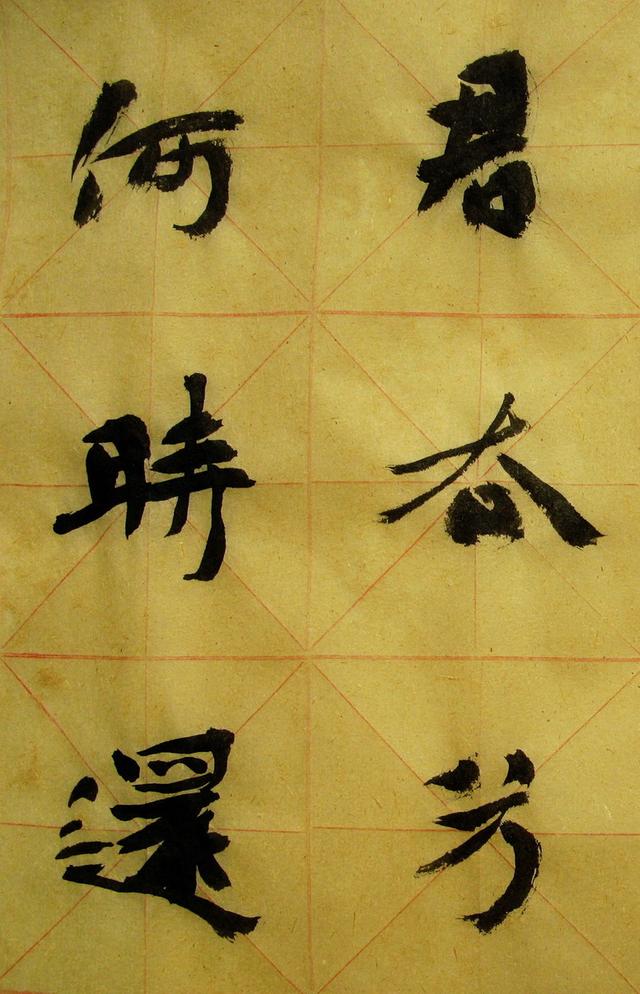 君去兮
何時還